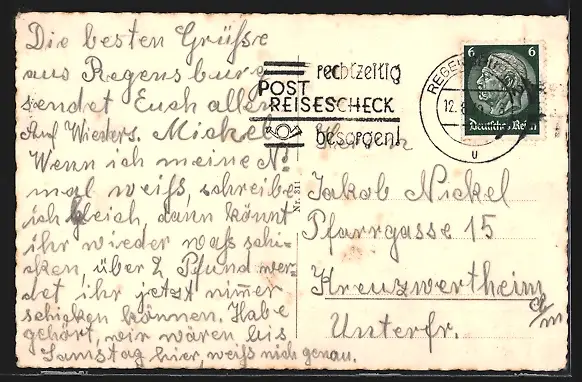 Die besten Grüsse
aus Regensburg
sendet Euch allen
Auf Wieders. Michel
Wenn ich meine N.
mal weiß, schreibe
ich gleich, dann könnt
ihr wieder waß schi-
cken, über 2 Pfund wer-
det ihr jetzt nimer
schicken können. Habe
gehört, wir wären bis
Samstag hier, weiß nich genau.
rechtzeitig
POST
REISESCHECK
besorgen!
REGENSBURG
12.8.
u
6 6
Deutsches Reich
Nr. 311
Jakob Nickel
Pfarrgasse 15
Kreuzwertheim
a/m
Unterfr.